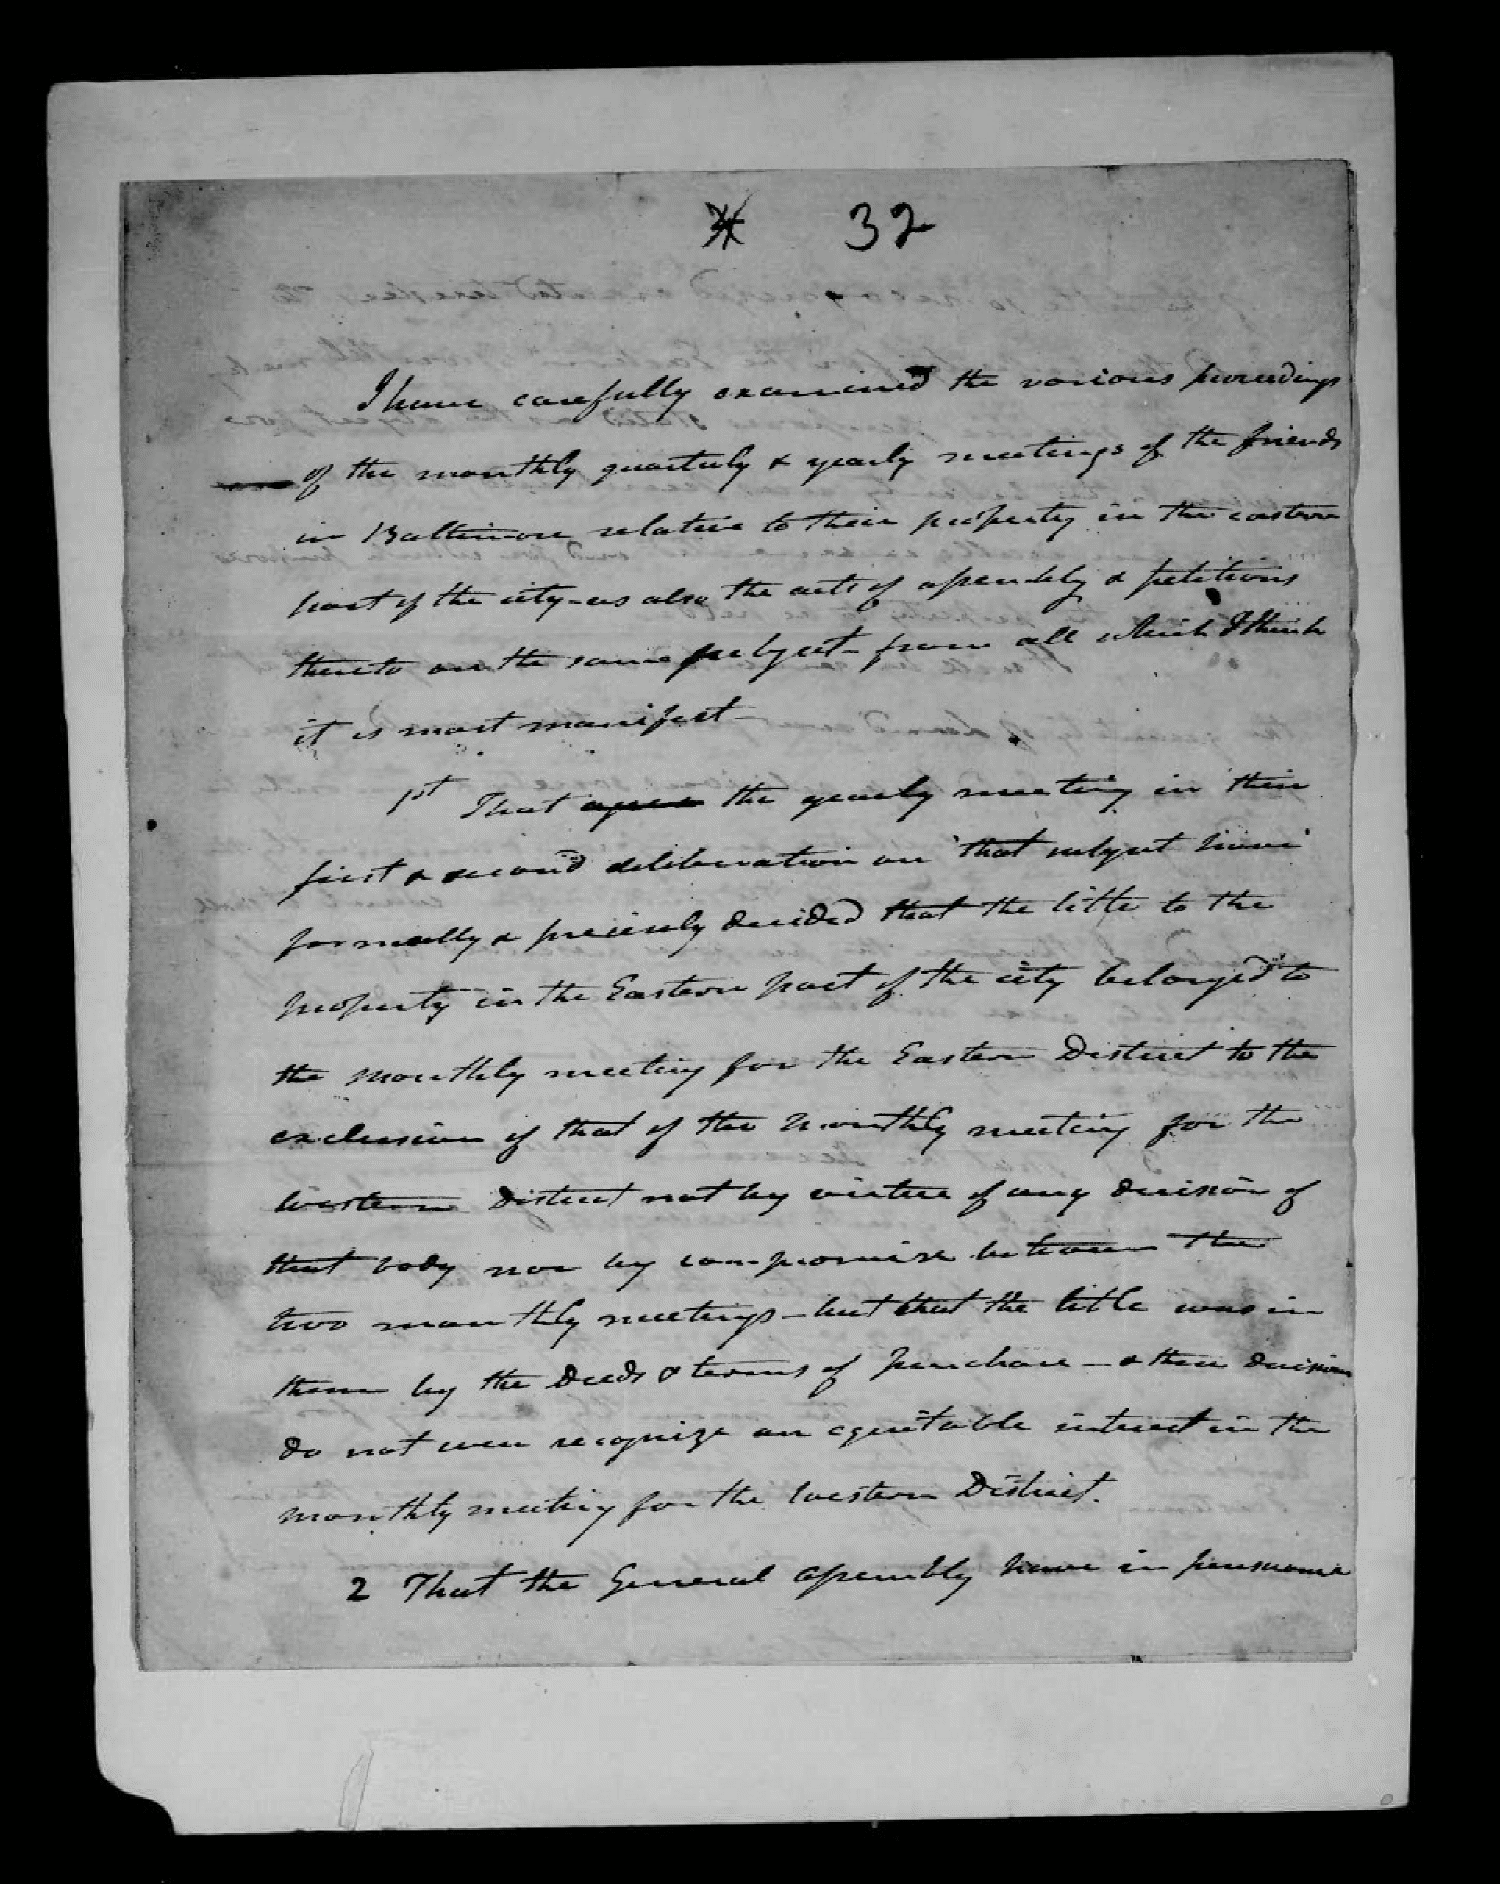 32
I have carefully examined the various proceedings
of the monthly quarterly & yearly meetings of the friends
in Baltimore relative to their property in the eastern
part of the city - as also the acts of assembly & petitions
thereto on the same subject - from all which I think
it is most manifest -
1st That the yearly meeting in their
first & second deliberation on that subject have
formally & precisely decided that the title to the
property in the Eastern part of the city belonged to
the monthly meeting for the Eastern District to the
exclusion of that of the Monthly meeting for the
western District not by virtue of any decision of
that body nor by compromise between the
two monthly meetings - but that the title was in
them by the Deeds & terms of purchase - & their decisions
do not even recognize an equitable interest in the
monthly meeting for the Western District.
2 That the General assembly have in pursuance